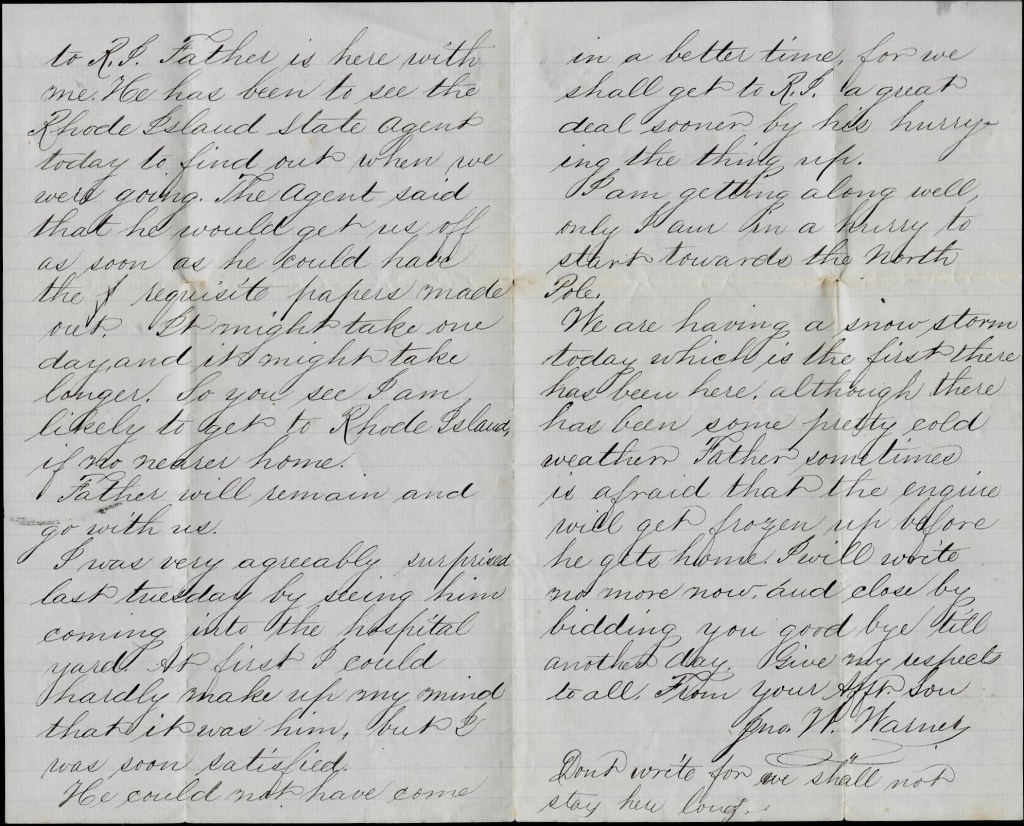 to R.I. Father is here with
me. He has been to see the
Rhode Island State Agent
today to find out when we
were going. The Agent said
that he would get us off
as soon as he could have
the requisite papers made
out. It might take one
day, and it might take
longer. So you see I am
likely to get to Rhode Island,
if no nearer home.
Father will remain and
go with us.
I was very agreeably surprised
last tuesday by seeing him
coming into the hospital
yard. At first I could
hardly make up my mind
that it was him, but I
was soon satisfied.
He could not have come
in a better time, for we
shall get to R.I. a great
deal sooner by his hurry-
ing the thing up.
I am getting along well,
only I am in a hurry to
start towards the North
Pole.
We are having a snow storm
today which is the first there
has been here, although there
has been some pretty cold
weather. Father sometimes
is afraid that the engine
will get frozen up before
he gets home. I will write
no more now, and close by
bidding you good bye till
another day. Give my respects
to all. From your Afft. Son
Jno. W. Warner
Dont write for we shall not
stay here long.